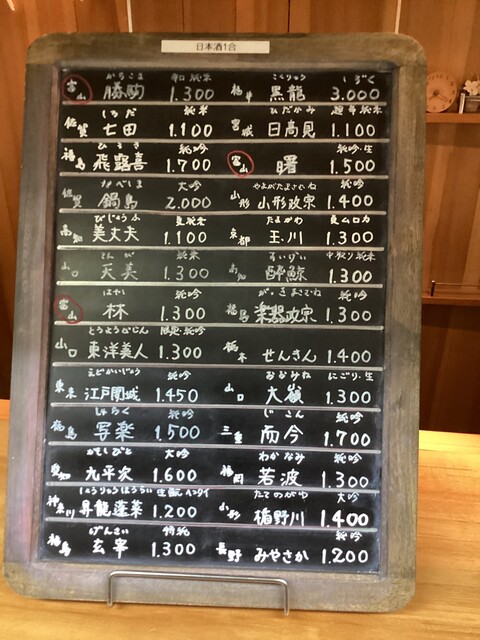 日本酒1合
かちこま 純米
富山 勝駒 1.300
しちだ 純米
佐賀 七田 1.100
ひろき 純吟
福島 飛露喜 1.700
なべしま 大吟
佐賀 鍋島 2.000
びじょうふ
高知 美丈夫 1.100
てんび 純米
山口 天美 1.300
はやし 純吟
富山 林 1.300
とうようびじん 純吟
山口 東洋美人 1.300
えどかいじょう 純吟
東京 江戸開城 1.450
しゃらく 純吟
福島 写楽 1.500
かもしびと 大吟
愛知 九平次 1.600
しょうりゅうほうらい 生酛
神奈川 昇龍蓬莱 1.200
げんさい 特純
福島 玄宰 1.300
こくりゅう しずく
福井 黒龍 3.000
ひだかみ 超辛純米
宮城 日高見 1.100
純吟・生
富山 曙 1.500
やまがたまさむね 純吟
山形 山形政宗 1.400
たまがわ
京都 玉川 1.300
すいげい 中取り純米
高知 酔鯨 1.300
がっきまさむね 純吟
福島 楽器政宗 1.300
栃木 せんきん 1.400
おおみね にごり・生
山口 大嶺 1.300
じこん 純吟
三重 而今 1.700
わかなみ 純吟
福岡 若波 1.300
たてのがわ 大吟
山形 楯野川 1.400
純吟
長野 みやさか 1.200